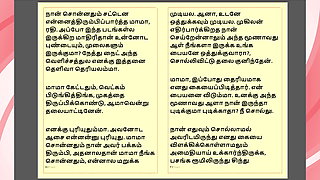 நான் சொன்னதும் சட்டென
என்னைத்திரும்பிப்பார்த்த மாமா,
ரதி. அப்போ இந்த படங்கள்ல
இருக்கிற மாதிரிதான் உன்னோட
புண்டையும், முலைகளும்
இருக்குமா? நேத்து நைட் அந்த
வெளிச்சத்துல எனக்கு இத்தனை
தெளிவா தெரியலம்மா.
மாமா கேட்டதும், வெட்கம்
பிடுங்கித்திங்க, முகத்தை
திருப்பிக்கொண்டு, ஆமாவென்று
தலையாட்டினேன்.
எனக்கு புரியுதும்மா. அவனோட
ஆசை என்னன்னு புரியுது. மாமா
சொன்னதும் நான் அவர் பக்கம்
திரும்பி, அதனாலதான் மாமா நீங்க
சொன்னதும், என்னால மறுக்க
முடியல. ஆனா, உடனே
ஒத்துக்கவும் முடியல. முகிலன்
எதிர்பார்க்கிறத நான்
செய்றேன்னாலும் அந்த மூணாவது
ஆள் நீங்களா இருக்க உங்க
பையனே ஒத்துக்குவாரா?,
சொல்லிவிட்டு தலை குனிந்தேன்.
மாமா, இப்போது தைரியமாக
எனது கையைப்பிடித்தார், என்
பையனை விடும்மா. உனக்கு அந்த
மூணாவது ஆளா நான் இருந்தா
புடிக்குமா புடிக்காதா? நீ சொல்லு.
நான் எதுவும் சொல்லாமல்
அவரிடமிருந்து எனது கையை
விளக்கிக்கொள்ளாமலும்
அமைதியாய் உட்கார்ந்திருக்க,
பசங்க ரூமிலிருந்து சிந்து